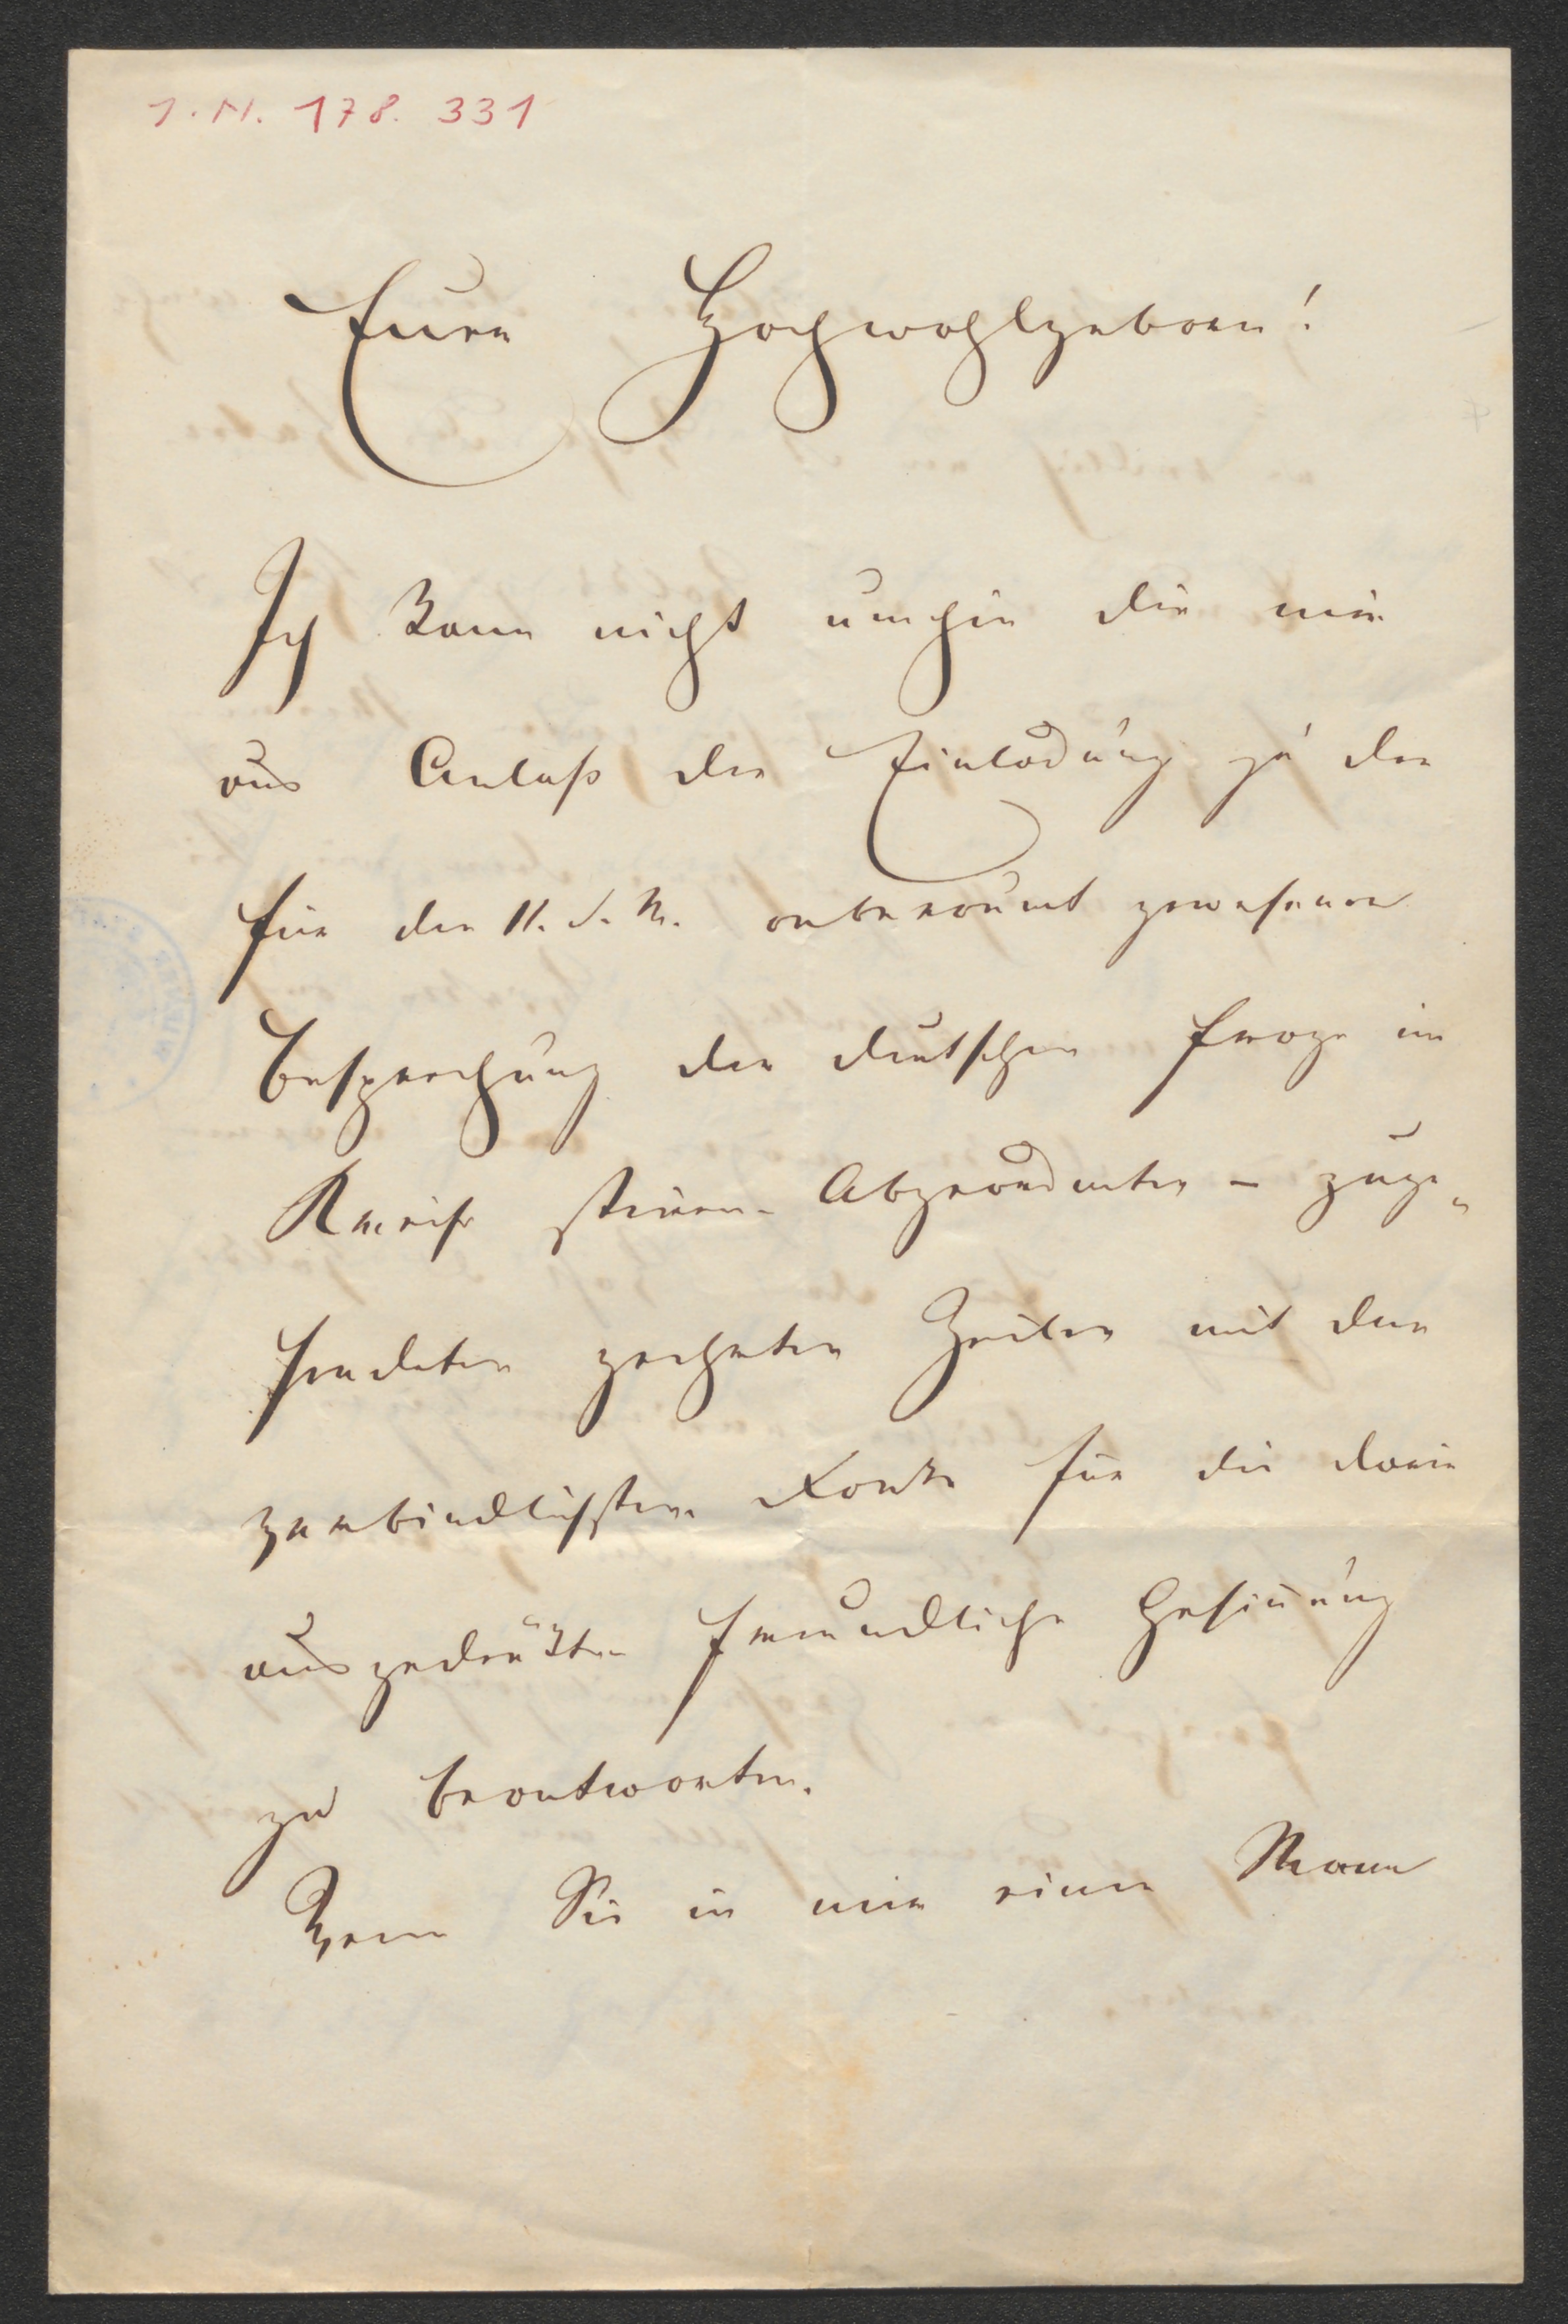 J. N. 178. 331
Euer Hochwohlgeboren!
Ich kann nicht umhin die mir
aus Anlaß der Einladung zu der
für den 11. d. M. anberaumt gewesenen
Besprechung der deutschen Frage im
Kreise Abgeordneter – zuge„
sendeten geehrten Zeilen mit dem
verbindlichsten Danke für die darin
ausgedrückte freundliche Gesinnung
zu beantworten.
Wenn Sie in mir einen Mann